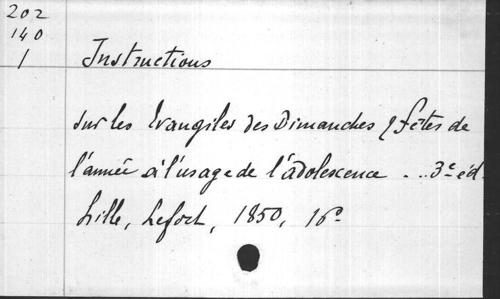 202
140
1
Instructions
sur les Evangiles des Dimanches & fêtes de
l'année à l'usage de l'adolescence - .. 3e éd.
Lille, Lefort, 1850, 16o